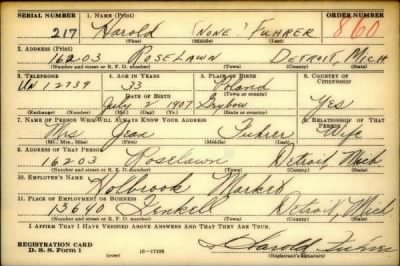 SERIAL NUMBER 1. NAME (Print) ORDER NUMBER
217 Harold (NONE) FUHRER 860
(First) (Middle) (Last)
2. ADDRESS (Print)
16203 ROSELAWN DETROIT, MICH
(Number and street or R. F. D. number) (Town) (County) (State)
3. TELEPHONE 4. AGE IN YEARS 5. PLACE OF BIRTH 6. COUNTRY OF CITIZENSHIP
Un 12739 33 Poland
DATE OF BIRTH (Town or county)
July 2 1907 Grybow Yes
(Exchange) (Number) (Mo.) (Day) (Yr.) (State or country)
7. NAME OF PERSON WHO WILL ALWAYS KNOW YOUR ADDRESS 8. RELATIONSHIP OF THAT PERSON
Mrs Jean Fuhrer Wife
(Mr., Mrs., Miss) (First) (Middle) (Last)
9. ADDRESS OF THAT PERSON
16203 Roselawn Detroit Mich
(Number and street or R. F. D. number) (Town) (County) (State)
10. EMPLOYER'S NAME
Holbrook Market
11. PLACE OF EMPLOYMENT OR BUSINESS
13640 Fenkell Detroit, Mich
(Number and street or R. F. D. number) (Town) (County) (State)
I AFFIRM THAT I HAVE VERIFIED ABOVE ANSWERS AND THAT THEY ARE TRUE.
REGISTRATION CARD
D. S. S. Form 1 (over) Harold Fuhrer
(Registrant's signature)